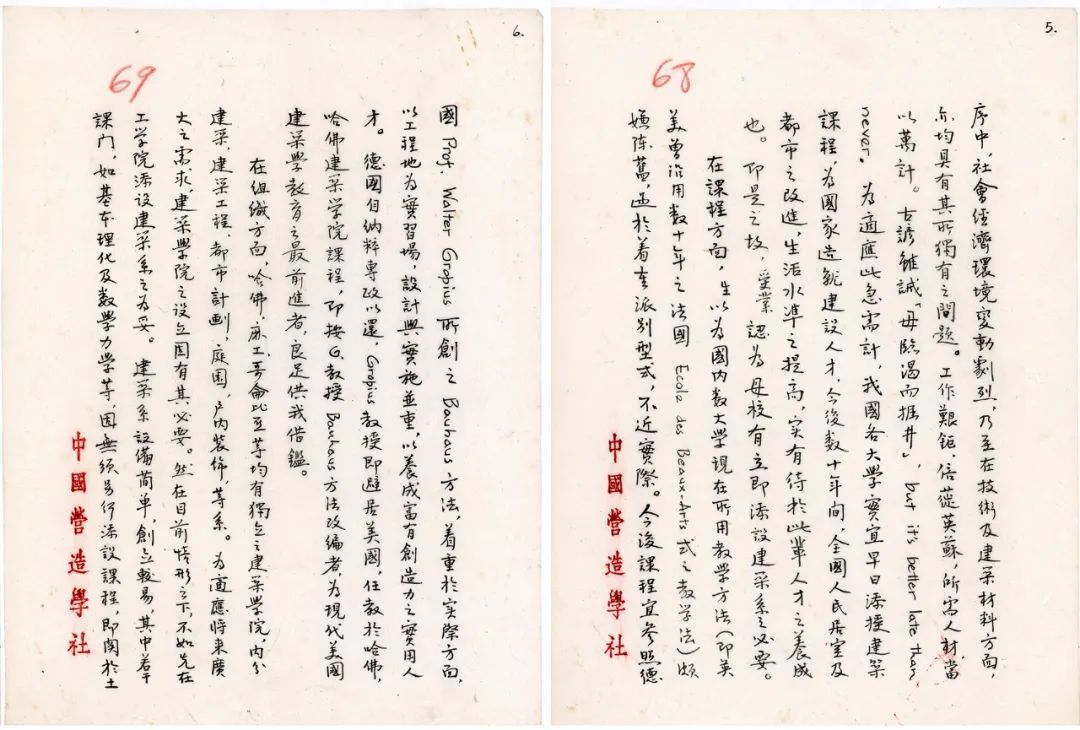 5.
68
序中,社會經濟環境變動劇烈,乃至在技術及建築材料方面,
亦均具有其所獨有之問題。工作艱鉅,倍蓰英蘇,所需人材當
以萬計。古諺雖誡「毋臨渴而掘井」, but its better late than
never. 為適應此急需計,我國各大學實宜早日添授建築
課程,為國家造就建設人才,今後數十年間,全國人民居室及
都市之改進,生活水準之提高,实有待於此輩人才之養成
也。即是之故,受業 認為母校有立即添設建築系之必要。
在課程方面,生以為國內数大學現在所用教学方法(即英
美曾沿用数十年之法國 Ecole des Beaux-Arts 式之教學法)頗
嫌陈舊,過於着重派别型式,不近實際。今後課程宜参照德
中國營造學社
6.
69
國 Prof. Walter Gropius 所創之 Bauhaus 方法,着重於实際方面,
以工程地为實習場,設計與實施並重,以養成富有創造力之實用人
才。德國自納粹專政以還,Gropius 教授即避居美國,任教於哈佛,
哈佛建築学院課程,即按 G. 教授 Bauhaus 方法改編者,為現代美國
建築學教育之最前進者,良足供我借鑑。
在组織方面,哈佛,麻工,哥倫比亞等均有獨立之建築学院,内分
建築,建築工程,都市計画,庭園,戶内裝飾,等系。为適應將來廣
大之需求,建築學院之设立固有其必要。然在目前情形之下,不如先在
工学院添設建築系之为妥。建築系設備简单,創立較易,其中若干
課门,如基本理化及数学力学等,固無須另行添設課程,即関於土
中國營造學社